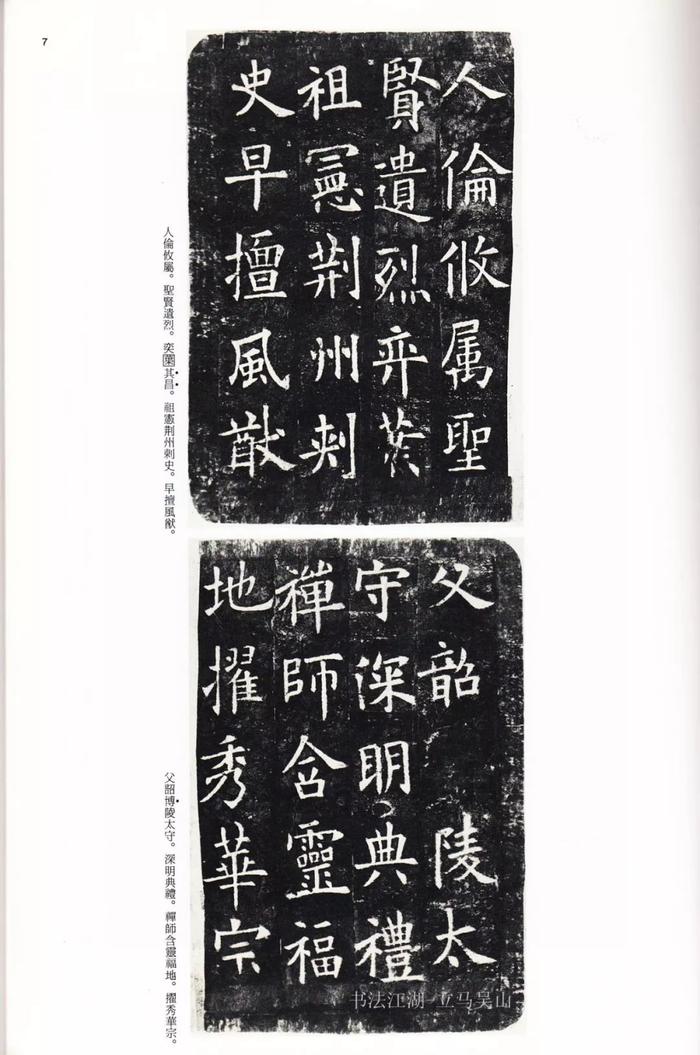 7
人倫攸属聖
賢遺烈弈葉
祖憲荆州刾
史早擅風猷
人倫攸屬。聖賢遺烈。奕葉其昌。祖憲荆州刺史。早擅風猷。
父韶 陵太
守深明典禮
禅師含靈福
地擢秀華宗
父韶博陵太守。深明典禮。禪師含靈福地。擢秀華宗。
书法江湖 立马吴山